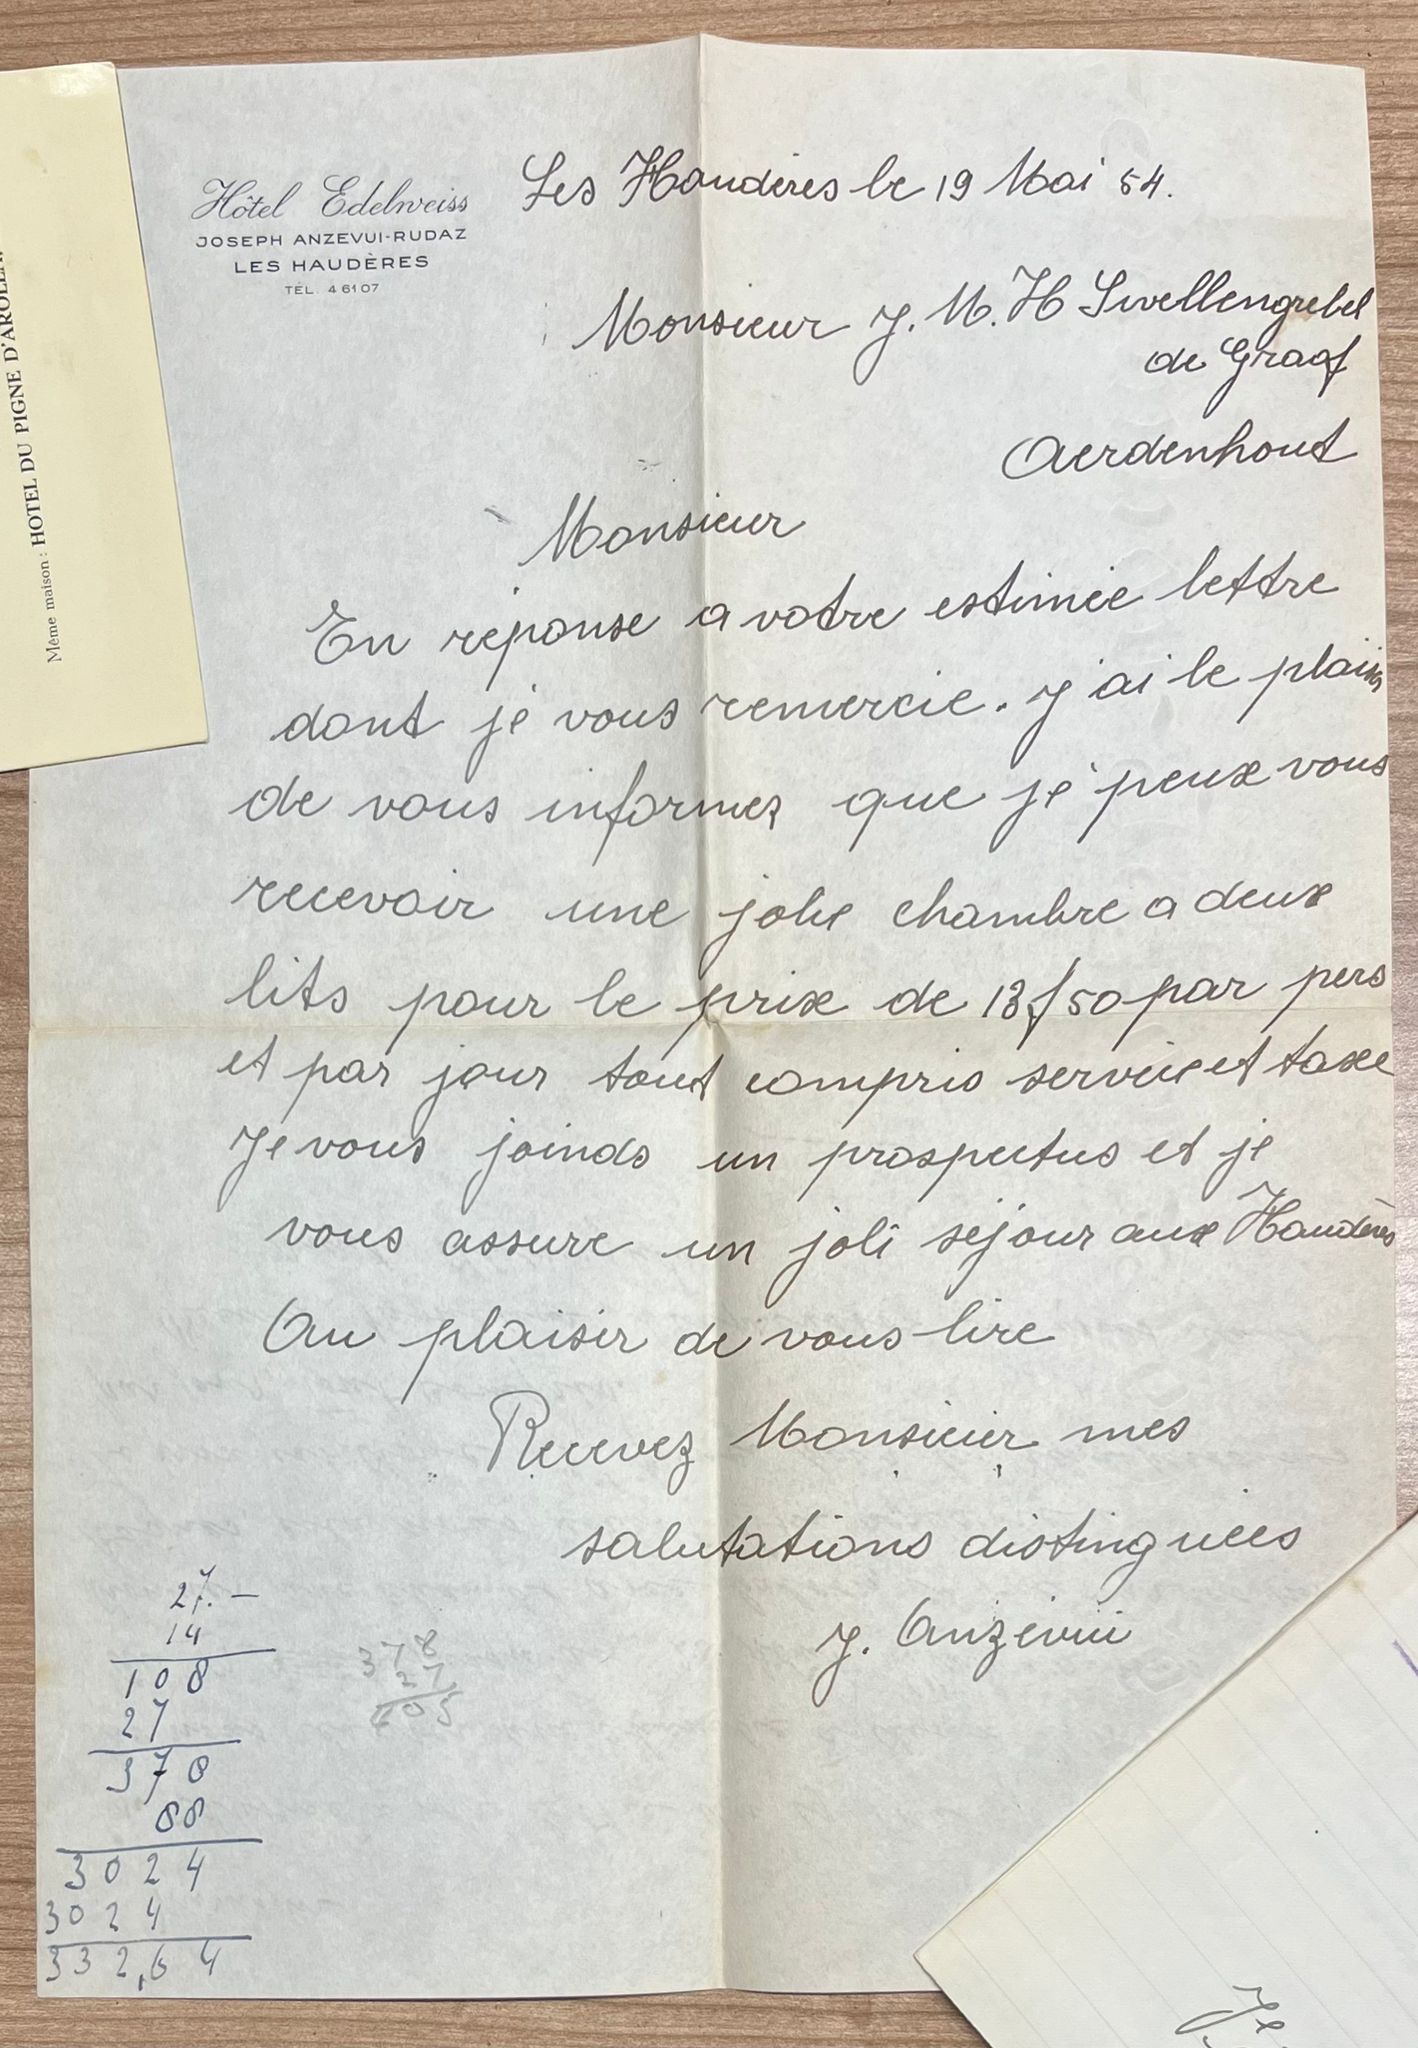 Même maison : HOTEL DU PIGNE D'AROLLA
Hôtel Edelweiss
JOSEPH ANZEVUI-RUDAZ
LES HAUDÈRES
TÉL. 4 61 07
Les Haudères le 19 Mai 54.
Monsieur J. M. H Swellengrebel
de Graaf
Aerdenhout
Monsieur
En réponse a votre estimée lettre
dont je vous remercie. J'ai le plaisir
de vous informer que je peux vous
recevoir une jolie chambre a deux
lits pour le prix de 13f50 par pers
et par jour tout compris service et taxe
Je vous joinds un prospectus et je
vous assure un joli séjour aux Haudères
Au plaisir de vous lire
Recevez Monsieur mes
salutations distinguées
J. Anzevui
27.—
14
108
27
378
88
3024
3024
332,64
378
27
405
Je